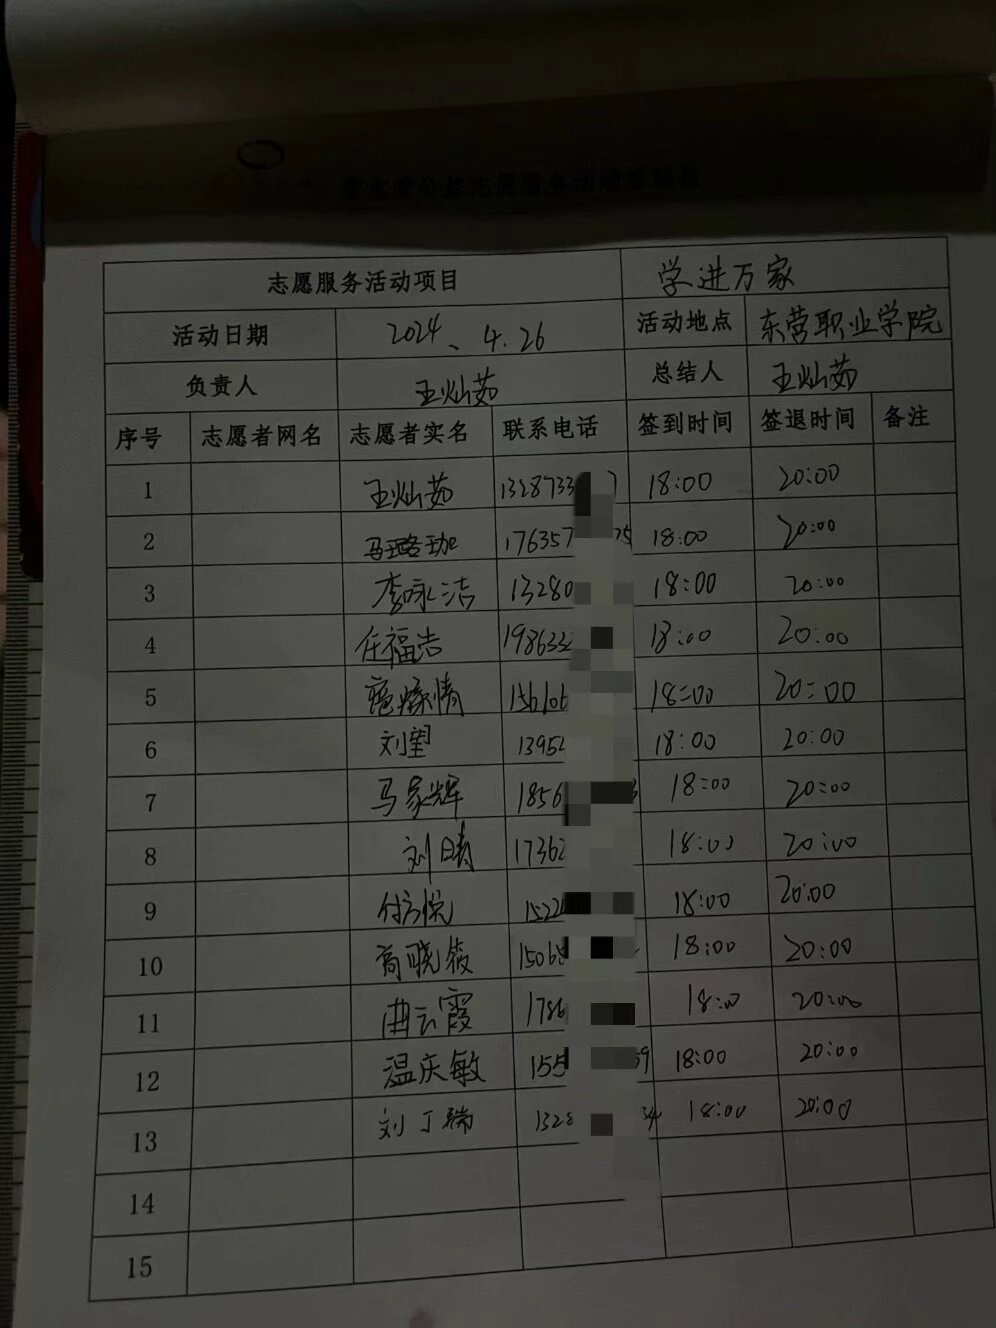 志愿服务活动项目 学进万家
活动日期 2024、4.26 活动地点 东营职业学院
负责人 王灿茹 总结人 王灿茹
序号 志愿者网名 志愿者实名 联系电话 签到时间 签退时间 备注
1 王灿茹 1328733 7 18:00 20:00
2 马璐珈 176357 75 18:00 20:00
3 李咏洁 13280 18:00 20:00
4 任福吉 198633 18:00 20:00
5 情 15610 18:00 20:00
6 刘 1395 18:00 20:00
7 马家辉 1856 18:00 20:00
8 刘晴 17362 18:00 20:00
9 付方悦 1522 18:00 20:00
10 高晓筱 15068 18:00 20:00
11 曲云霞 1786 18:00 20:00
12 温庆敏 155 59 18:00 20:00
13 刘丁瑞 1328 34 18:00 20:00
14
15